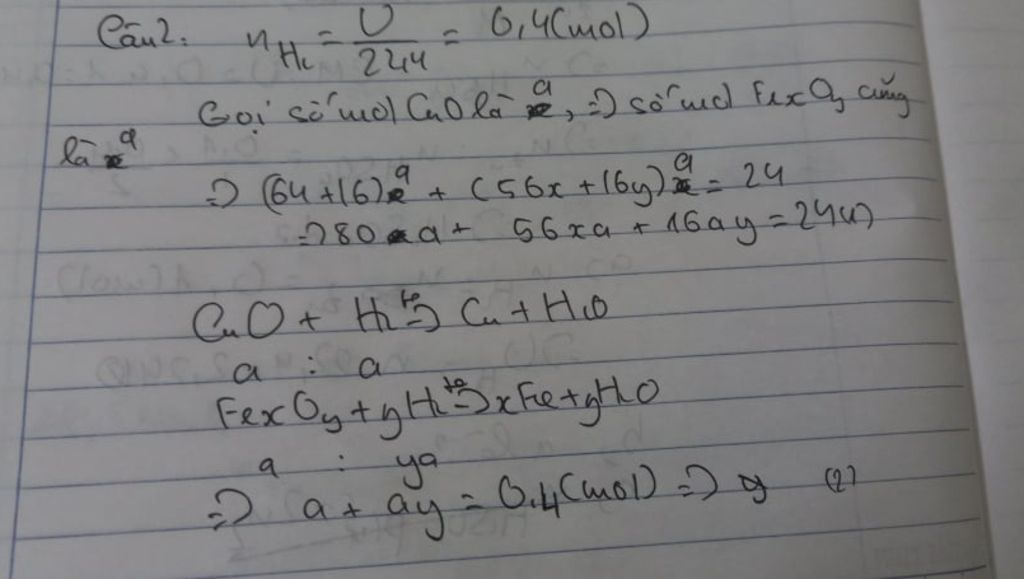 Câu 2: n H₂ = V/22,4 = 0,4 (mol)
Gọi số mol CuO là a, => số mol FexOy cũng
là a
=> (64+16)a + (56x+16y)a = 24
=> 80a + 56xa + 16ay = 24 (1)
CuO + H₂ t° => Cu + H₂O
a : a
FexOy + yH₂ t° => xFe + yH₂O
a : ya
=> a + ay = 0,4 (mol) => y (2)